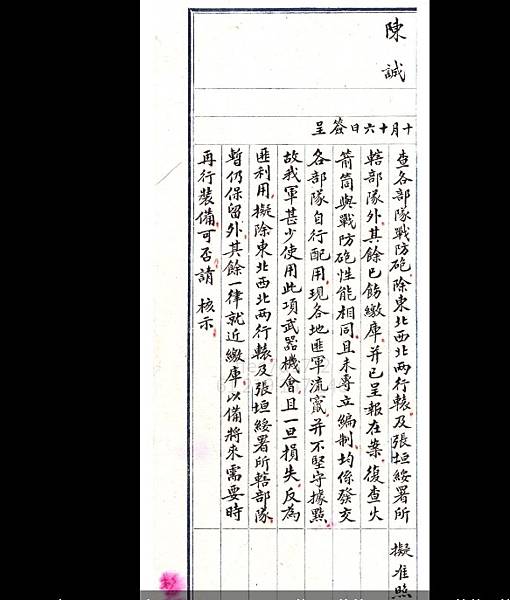 陳誠
十月十六日簽呈
查各部隊戰防砲除東北西北兩行轅及張垣綏署所
轄部隊外其餘已飭繳庫并已呈報在案復查火
箭筒與戰防砲性能相同且未專立編制均係發交
各部隊自行配用現各地匪軍流竄并不堅守據點
故我軍甚少使用此項武器機會且一旦損失反為
匪利用擬除東北西北兩行轅及張垣綏署所轄部隊
暫仍保留外其餘一律就近繳庫以備將來需要時
再行裝備可否請 核示
擬准照